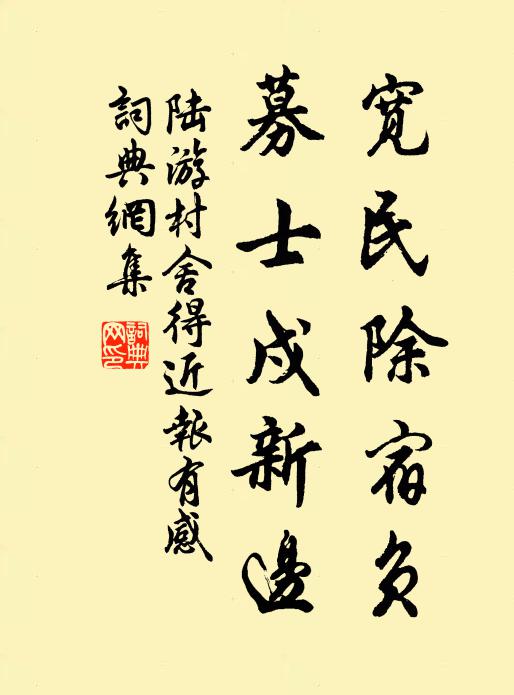 寬民除宿負
募士戍新邊
陆游村舍得近報有感
詞典網集
詞典网印